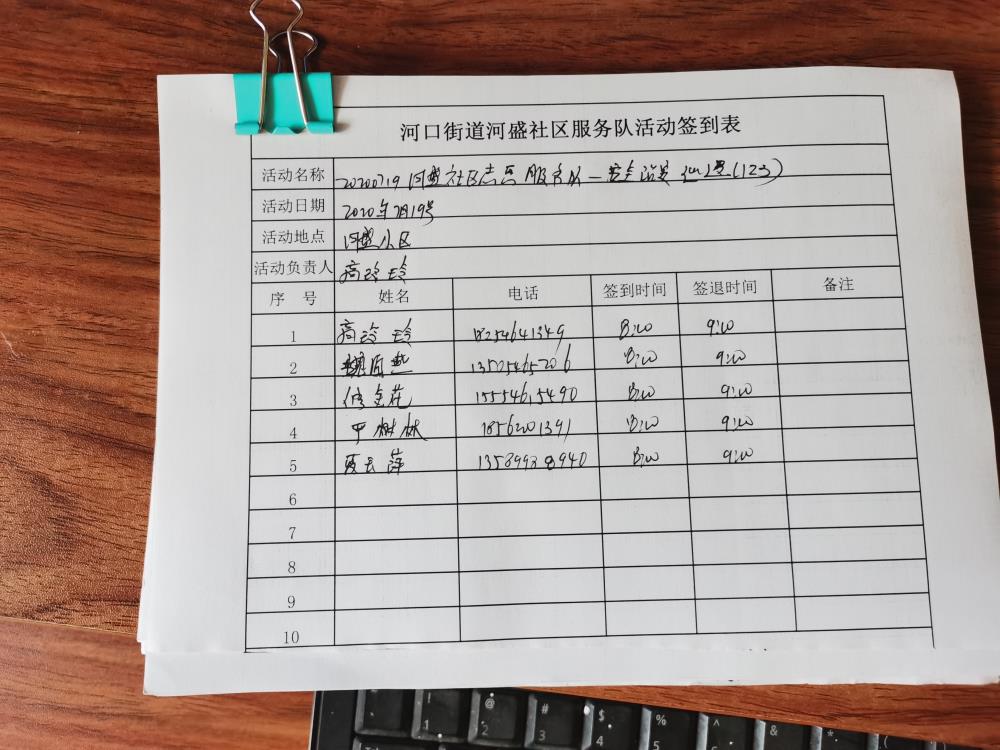 河口街道河盛社区服务队活动签到表
活动名称 20200719河盛社区志愿服务队一安全
活动日期 2020年7月19号
活动地点 河盛小区
活动负责人 高玲玲
序 号 姓名 电话 签到时间 签退时间 备注
1 高玲玲 18254641349 8:00 9:00
2 13525465206 8:00 9:00
3 修金花 15554615490 8:00 9:00
4 树林 1856201391 8:00 9:00
5 夏云萍 13589988940 8:00 9:00
6
7
8
9
10
1
2
3
4